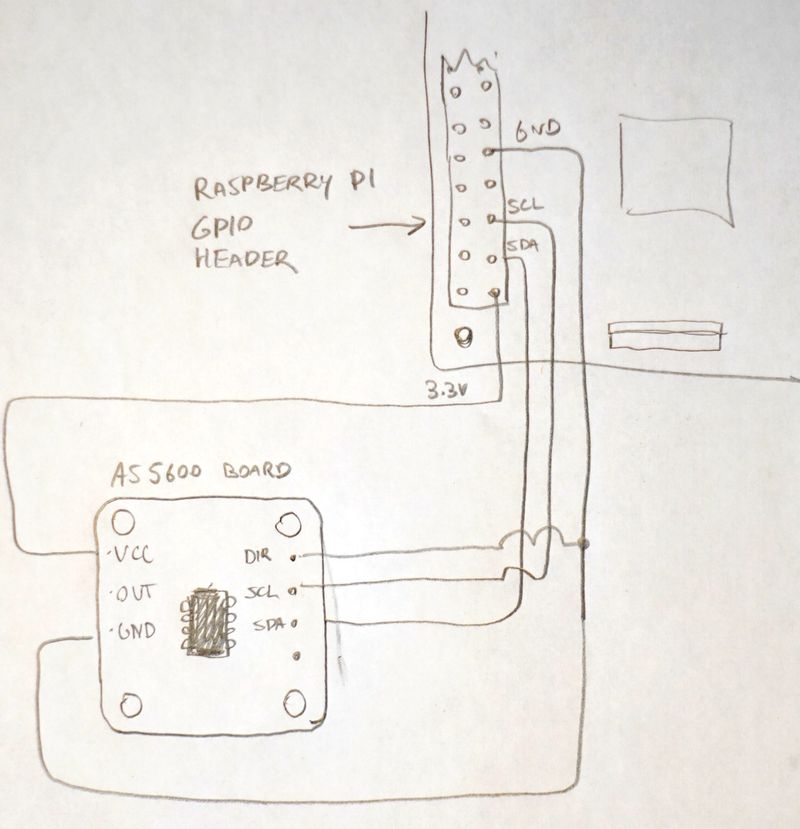 GND
RASPBERRY PI
GPIO
HEADER
SCL
SDA
3.3V
AS5600 BOARD
VCC
DIR
OUT
SCL
GND
SDA